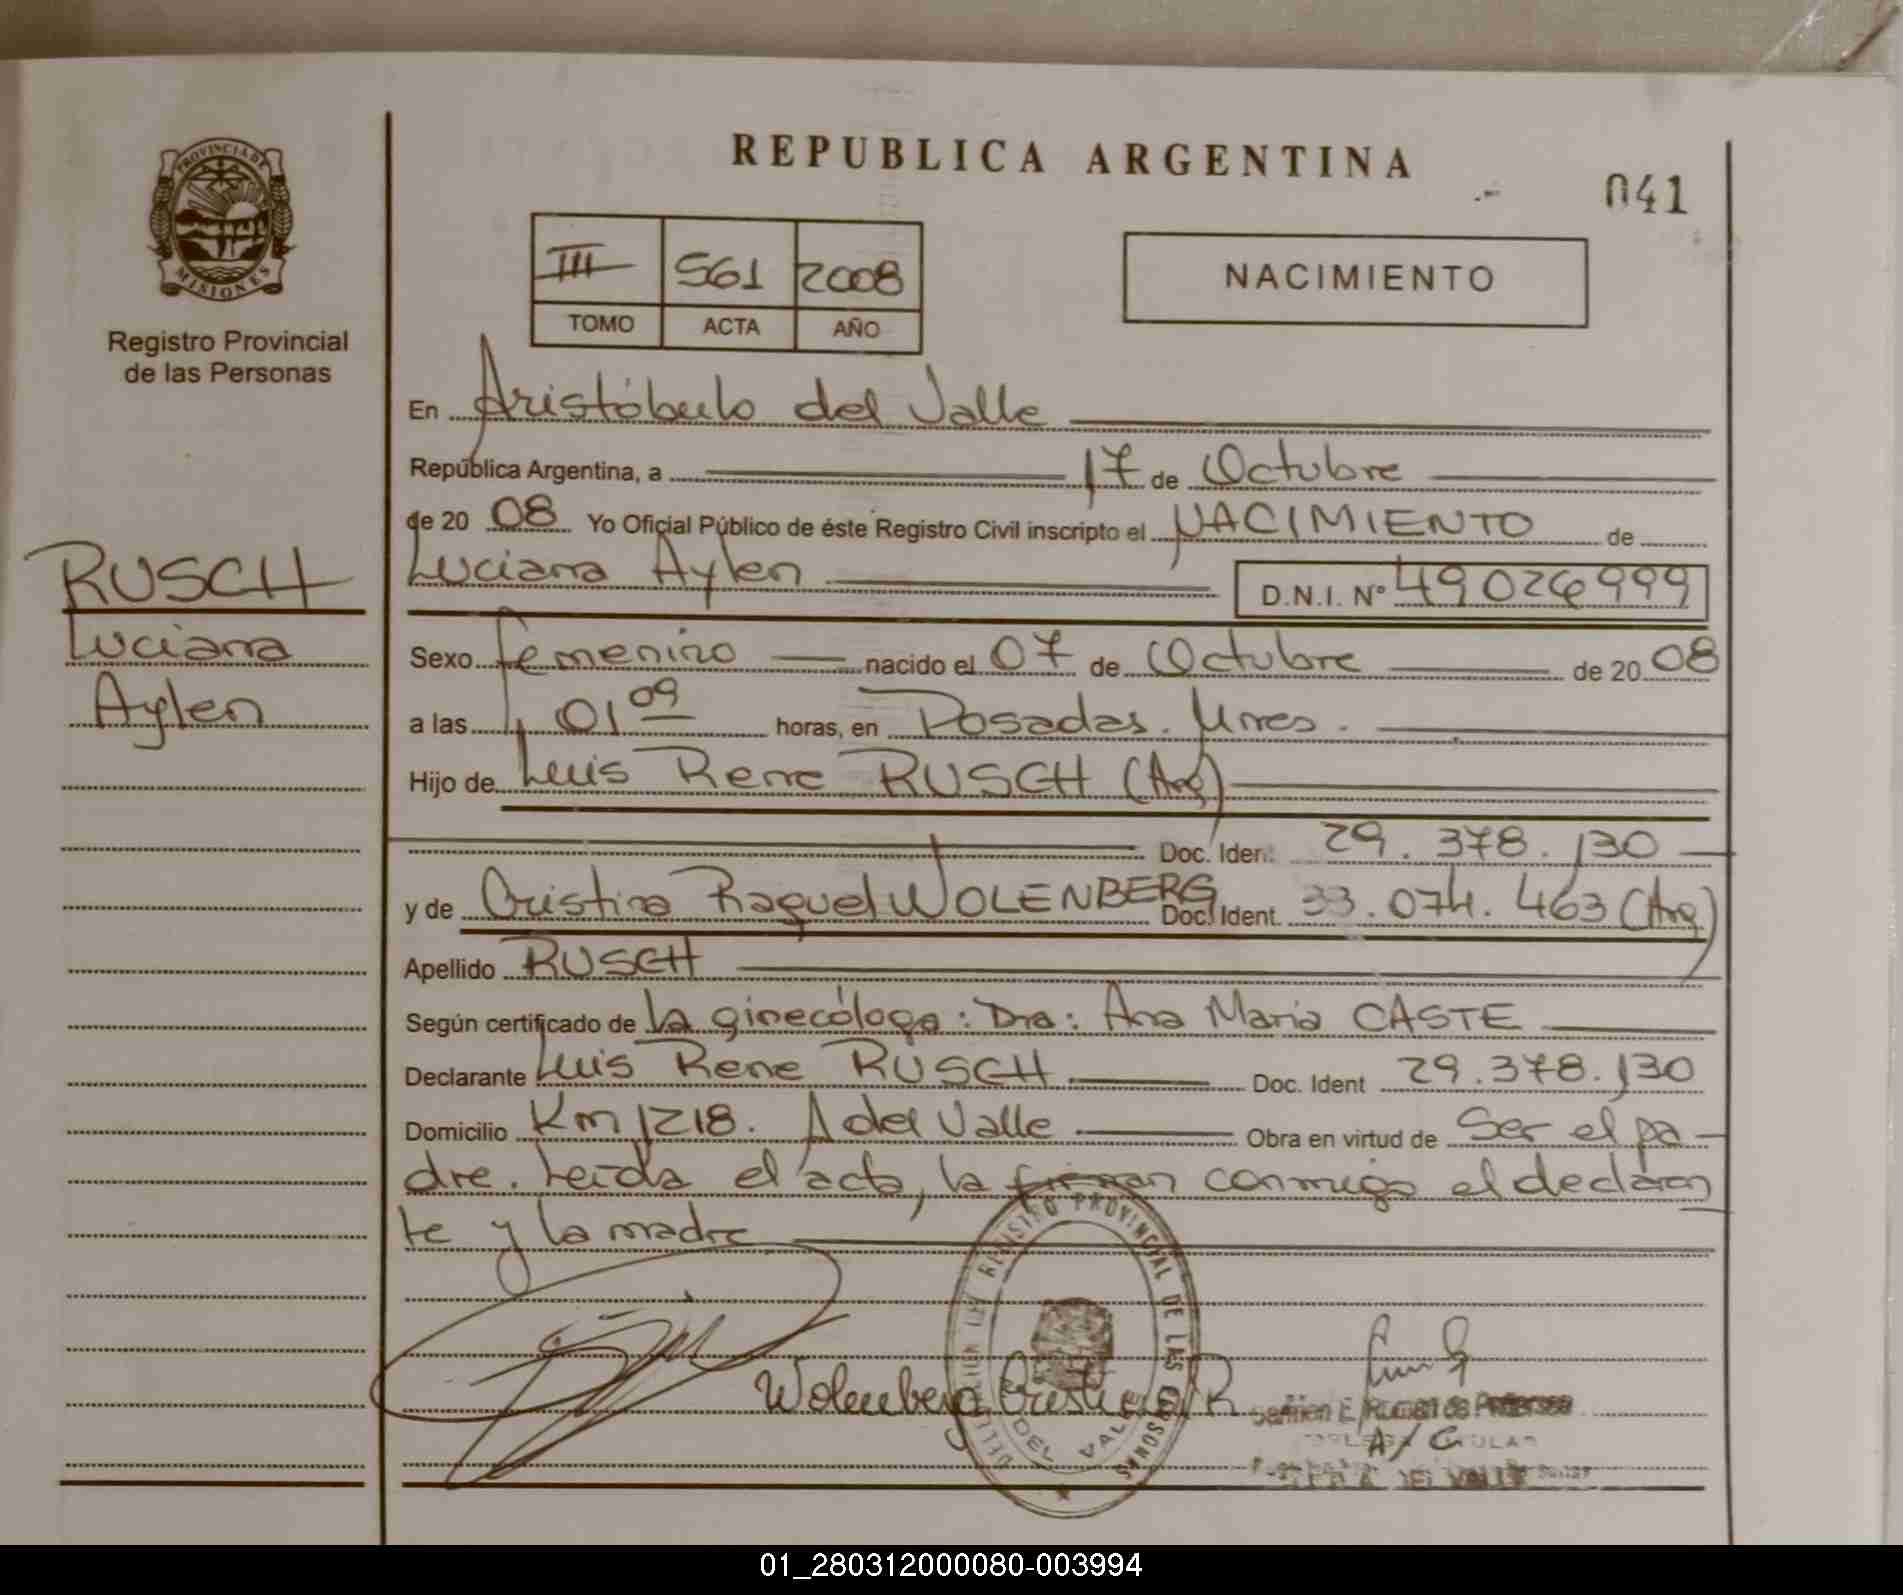 REPUBLICA ARGENTINA
041
PROVINCIA DE
MISIONES
Registro Provincial
de las Personas
III 561 2008
TOMO ACTA AÑO
NACIMIENTO
En Aristóbulo del Valle
República Argentina, a 17 de Octubre
de 20 08 Yo Oficial Público de éste Registro Civil inscripto el NACIMIENTO de
Luciana Aylen D.N.I. Nº 49026999
RUSCH
Luciana
Aylen
Sexo femenino nacido el 07 de Octubre de 20 08
a las 01 09 horas, en Posadas. Mnes.
Hijo de Luis Rene RUSCH (Arg)
Doc. Ident. 29.378.130
y de Cristina Raquel WOLENBERG Doc. Ident. 33.074.463 (Arg)
Apellido RUSCH
Según certificado de la ginecóloga: Dra: Ana Maria CASTE
Declarante Luis Rene RUSCH Doc. Ident 29.378.130
Domicilio Km 1218. A del Valle Obra en virtud de Ser el pa-
dre. Leída el acta, la firman conmigo el declaran
te y la madre
REGISTRO PROVINCIAL DE LAS PERSONAS
DEL VALLE
Wolenberg Cristina R
A/C
DEL VALLE
01_280312000080-003994